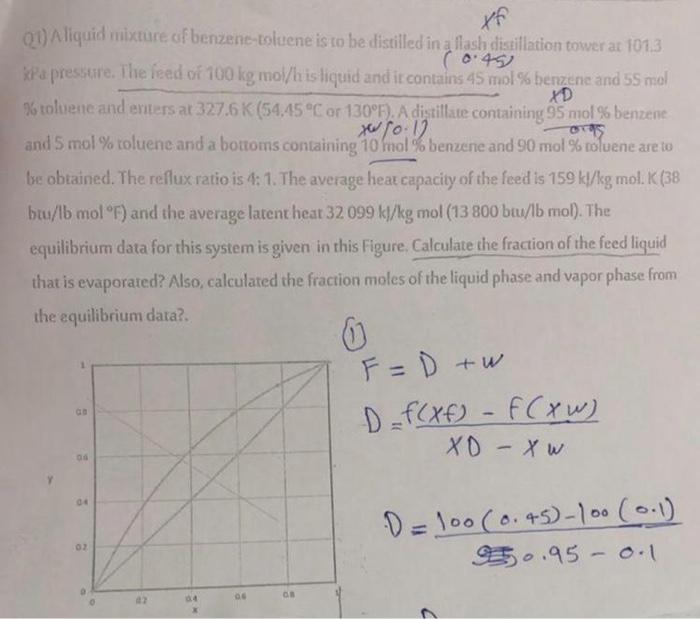 xf
Q1) A liquid mixture of benzene-toluene is to be distilled in a flash distillation tower at 101.3
(0.45)
kPa pressure. The feed of 100 kg mol/h is liquid and it contains 45 mol % benzene and 55 mol
xD
% toluene and enters at 327.6 K (54.45 °C or 130°F). A distillate containing 95 mol % benzene
xw (0.1) 0.95
and 5 mol % toluene and a bottoms containing 10 mol % benzene and 90 mol % toluene are to
be obtained. The reflux ratio is 4: 1. The average heat capacity of the feed is 159 kJ/kg mol. K (38
btu/lb mol °F) and the average latent heat 32 099 kJ/kg mol (13 800 btu/lb mol). The
equilibrium data for this system is given in this Figure. Calculate the fraction of the feed liquid
that is evaporated? Also, calculated the fraction moles of the liquid phase and vapor phase from
the equilibrium data?.
①
F = D + w
D = f(xf) - F(xw)
XD - xw
D = 100(0.45)-100(0.1)
0.95 - 0.1
1
0.8
0.6
y
0.4
0.2
0
0 0.2 0.4 0.6 0.8 1
x